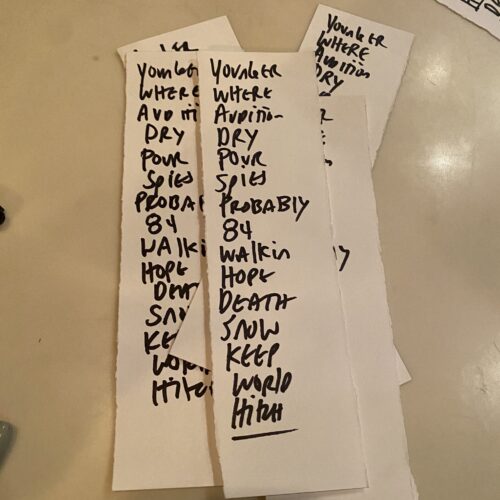 YOUNGER
WHERE
AUDITION
DRY
POUR
SPIES
PROBABLY
84
WALKIN
HOPE
DEATH
SNOW
KEEP
WORLD
HITCH
YOUNGER
WHERE
AUDITI
DRY
POUR
SPIES
PROBAB
84
WALKIN
HOPE
DEAT
SNOW
KE
WORL
HITCH
YOUNGER
WHERE
AUDITION
DRY